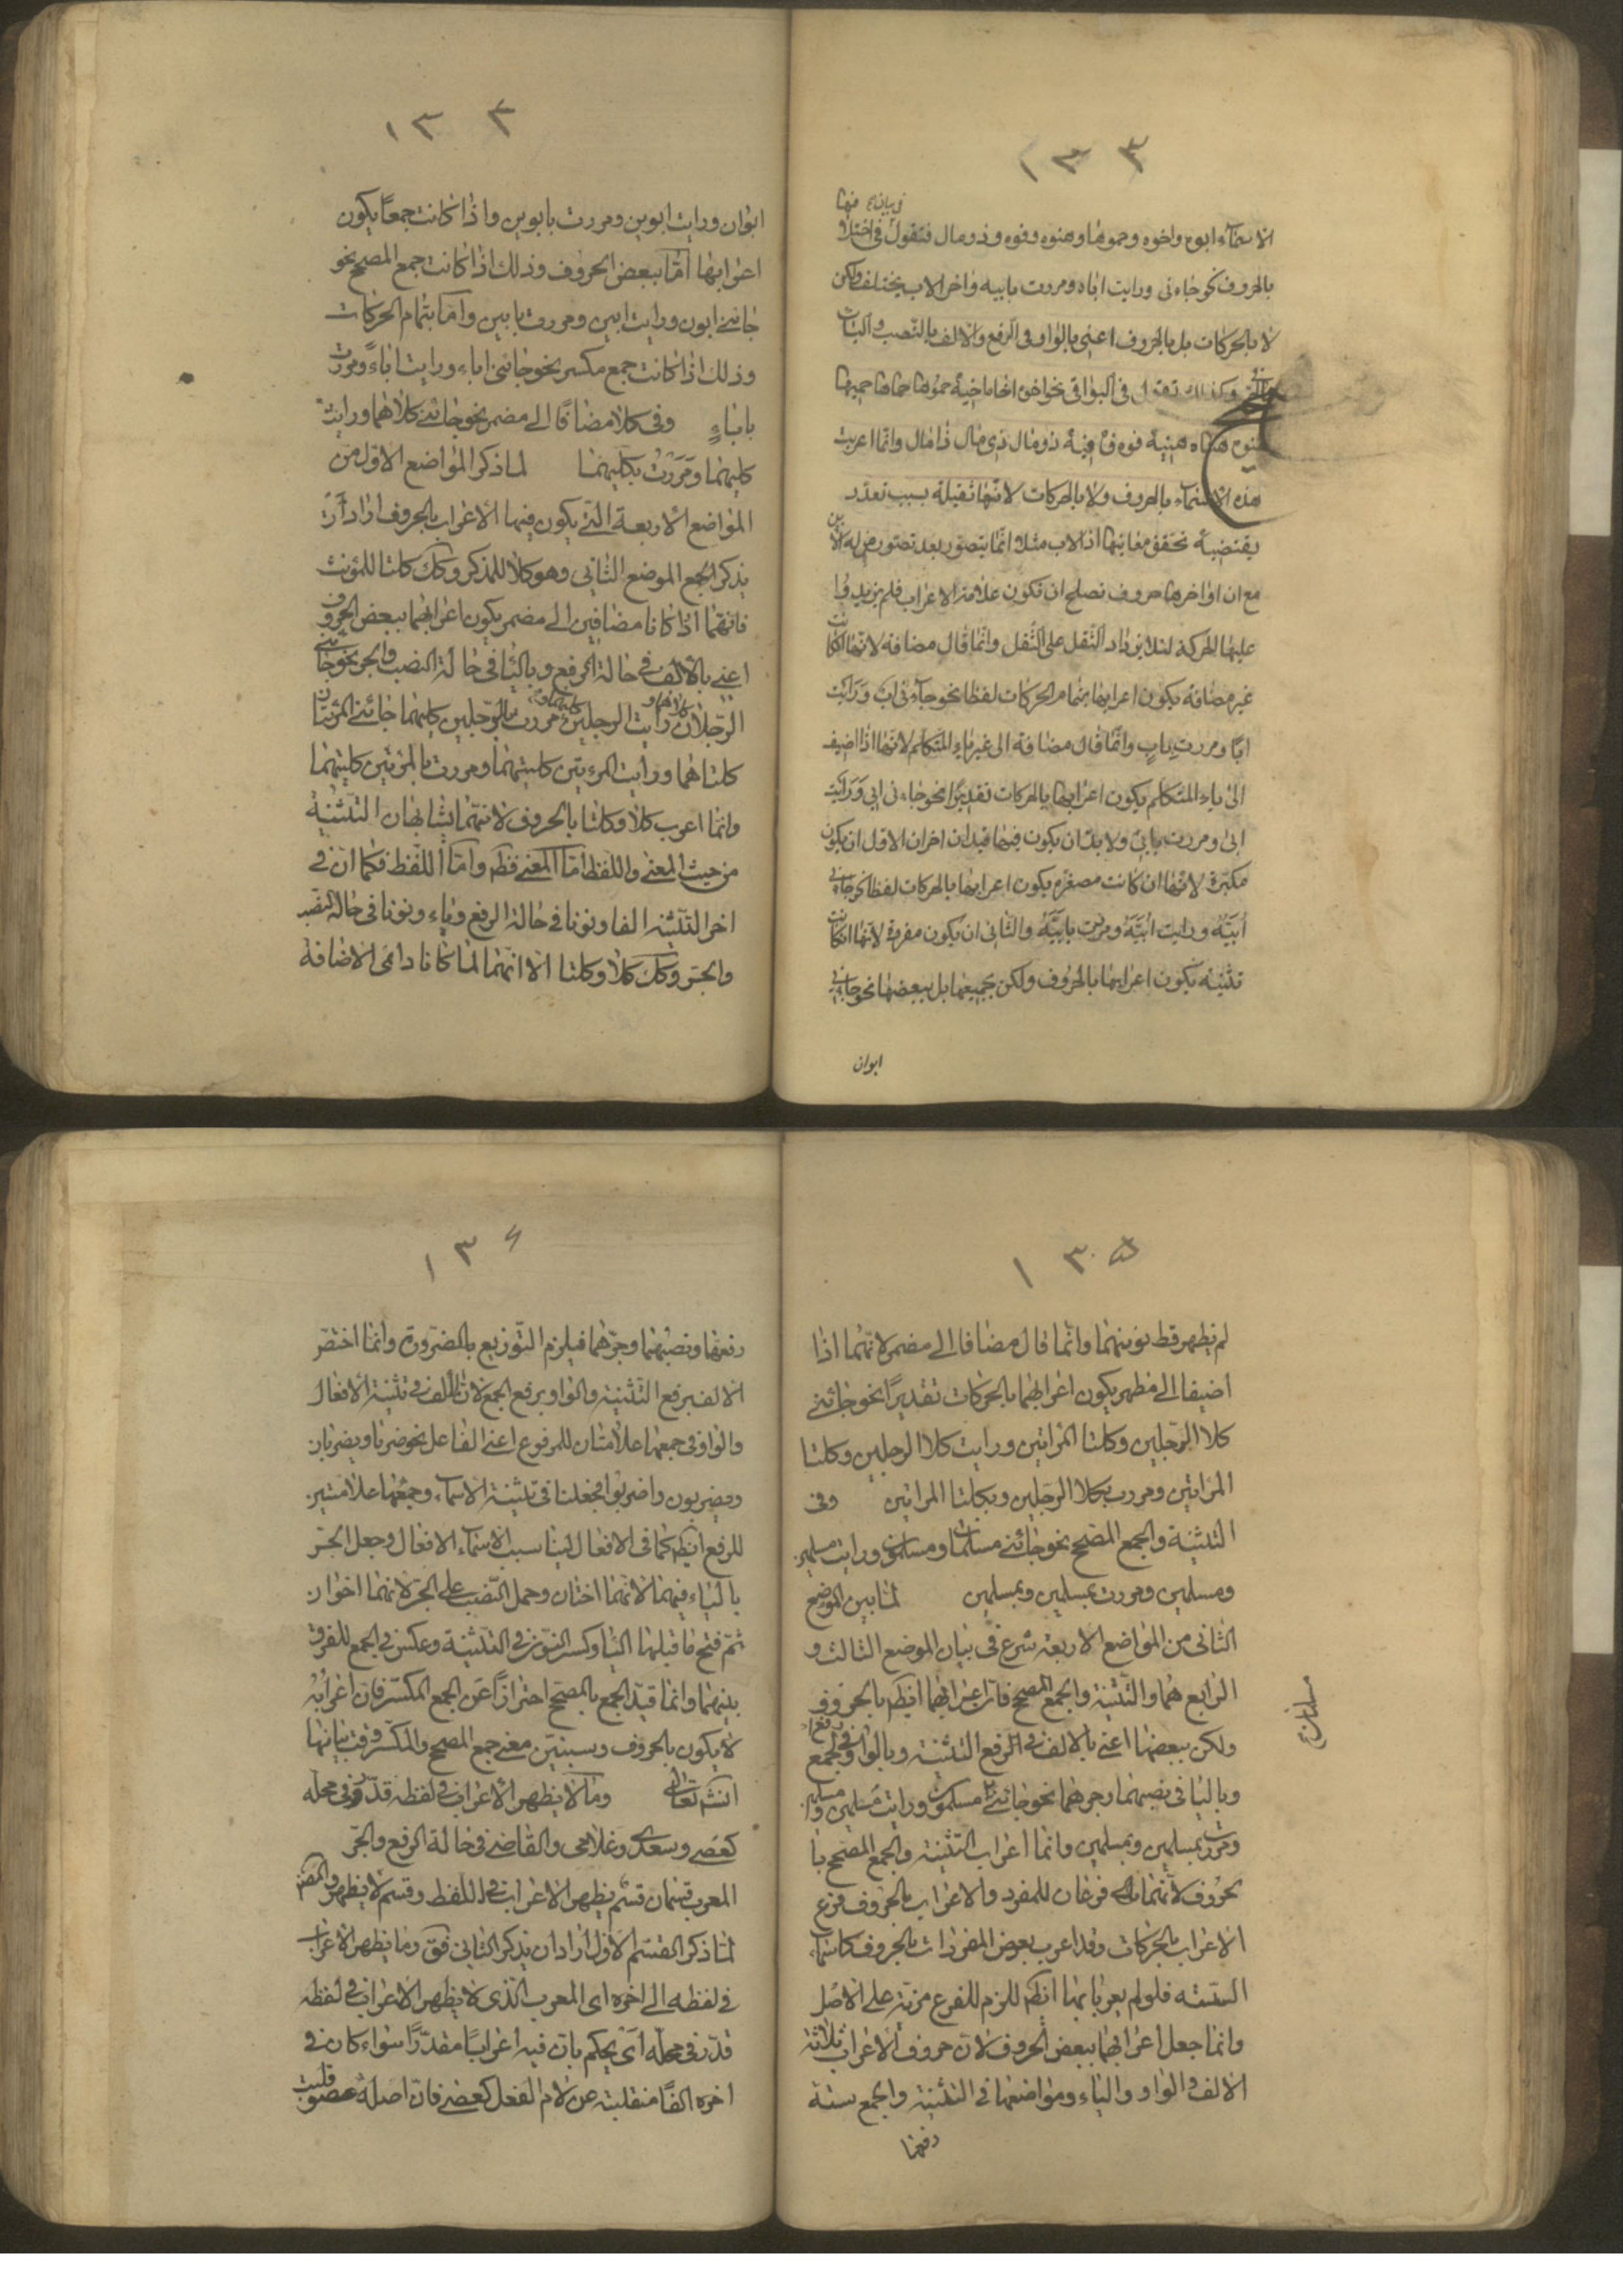 ١٣٣
في بيانه فيها
الاسماء ابوه واخوه وحموها وهنوه وفوه وذو مال فتقول في اختلاف
بالحروف نحو جاءنى ورايت اباه ومررت بابيه واخر الاب يختلف ولكن
لا بالحركات بل بالحروف اعنى بالواو فى الرفع والالف بالنصب والياء
والجر وكذلك تقول فى البواقى نحو اخوه اخاه اخيه حموها حماها حميها
هنوه هناه هنيه فوه فاه فيه ذو مال ذى مال ذا مال وانما اعربت
هذه الاسماء بالحروف ولا بالحركات لانها ثقيلة بسبب تعدد
يقتضيه تحقق معانيها اذ الاب مثلا انما يتصور بعد تصور من له الابن
مع ان اواخرها حروف تصلح ان تكون علامة الاعراب فلم يزيدوا
عليها الحركة لئلا يزداد الثقل على الثقل وانما قال مضافة لانها ان كانت
غير مضافة يكون اعرابها بتمام الحركات لفظا نحو جاءنى اب ورايت
ابا ومررت باب وانما قال مضافة الى غير ياء المتكلم لانها اذا اضيف
الى ياء المتكلم يكون اعرابها بالحركات تقديرا نحو جاءنى ابى ورايت
ابى ومررت بابى ولا بد ان يكون فيها قيدان اخران الاول ان يكون
مكبرة لانها ان كانت مصغرة يكون اعرابها بالحركات لفظا نحو جاءنى
ابيه ورايت ابيه ومررت بابيه والثانى ان يكون مفردة لانها ان كانت
تثنية يكون اعرابها بالحروف ولكن بجميعها بل ببعضها نحو جاءنى
ابوان
١٣٣
ابوان ورايت ابوين ومررت بابوين واذا كانت جمعا يكون
اعرابها اما ببعض الحروف وذلك اذا كانت جمع المصحح نحو
جائنى ابون ورايت ابين ومررت بابين واما بتمام الحركات
وذلك اذا كانت جمع مكسر نحو جائنى اباء ورايت اباء ومررت
باباء وفى كلا مضافا الى مضمر نحو جائنى كلاهما ورايت
كليهما ومررت بكليهما لما ذكر المواضع الاول من
المواضع الاربعة التى يكون فيها الاعراب بالحروف اراد ان
يذكر الجمع الموضع الثانى وهو كلا للمذكر وكك كلتا للمؤنث
فانهما اذا كانا مضافين الى مضمر يكون اعرابهما ببعض الحروف
اعنى بالالف فى حالة الرفع وبالياء فى حالة النصب والجر نحو جائنى
الرجلان كلاهما ورايت الرجلين كليهما ومررت بالرجلين كليهما جائنى المرئتان
كلتاهما ورايت المرءتين كلتيهما ومررت بالمرئتين كلتيهما
وانما اعرب كلا وكلتا بالحروف لانهما يشابهان التثنية
من حيث المعنى واللفظ اما المعنى فظ واما اللفظ فكما ان فى
اخر التثنية الفا ونونا فى حالة الرفع وياء ونونا فى حالة النصب
والجر وكك كلا وكلتا الا انهما لما كانا دائمى الاضافة
١٣٥
لم يظهر قط نونهما وانما قال مضافا الى مضمر لانهما اذا
اضيفا الى مظهر يكون اعرابهما بالحركات تقديرا نحو جائنى
كلا الرجلين وكلتا المراتين ورايت كلا الرجلين وكلتا
المراتين ومررت بكلا الرجلين وبكلتا المراتين وفى
التثنية والجمع المصحح نحو جائنى مسلمان ومسلمون ورايت مسلمين
ومسلمين ومررت بمسلمين وبمسلمين لما بين الموضع
الثانى من المواضع الاربعة شرع فى بيان الموضع الثالث و
الرابع هما والتثنية والجمع المصحح فان اعرابهما ايضا بالحروف
ولكن ببعضها اعنى بالالف فى الرفع التثنية وبالواو فى رفع الجمع
وبالياء فى نصبهما وجرهما نحو جائنى مسلمون ورايت مسلمين ومسلمين
ومررت بمسلمين وبمسلمين وانما اعراب التثنية والجمع المصحح با
لحروف لانهما فرعان للمفرد والاعراب بالحروف فرع
الاعراب بالحركات وقد اعرب بعض المفردات بالحروف كاسماء
الستة فلو لم يعربا بها ايضا للزم للفرع مزية على الاصل
وانما جعل اعرابهما ببعض الحروف لان حروف الاعراب ثلاثة
الالف والواو والياء ومواضعها فى التثنية والجمع ستة
رفعهما
مسلمان
١٣٦
رفعهما ونصبهما وجرهما فيلزم التوزيع بالضرورة وانما اختص
الالف برفع التثنية والواو برفع الجمع لان الالف فى تثنية الافعال
والواو فى جمعها علامتان للمرفوع اعنى الفاعل نحو ضربا ويضربان
ويضربون واضربوا فجعلنا فى تثنية الاسماء وجمعها علامتين
للرفع ايضا كما فى الافعال ليناسب الاسماء الافعال وجعل الجر
بالياء فيهما لانهما اختان وحمل النصب على الجر لانهما اخوان
ثم فتح ما قبلها الياء وكسر النون فى التثنية وعكس فى الجمع للفرق
بينهما وانما قيد الجمع بالمصحح احترازا عن الجمع المكسر فان اعرابه
لا يكون بالحروف وسيبين معنى جمع المصحح والمكسر وقت بيانها
انشاء تعالى وما لا يظهر الاعراب فى لفظه قدر فى محله
كعصى وسعدى وغلامى والقاضى فى حالة الرفع والجر
المعرب قسمان قسم يظهر الاعراب فى اللفظ وقسم لا يظهر والمص
لما ذكر القسم الاول اراد ان يذكر الثانى فق وما يظهر الاعراب
فى لفظه الى اخره اى المعرب الذى لا يظهر الاعراب فى لفظه
قدر فى محله اى يحكم بان فيه اعرابا مقدرا سواء كان فى
اخره الفا منقلبة عن لام الفعل كعصى فان اصله عصو قلبت